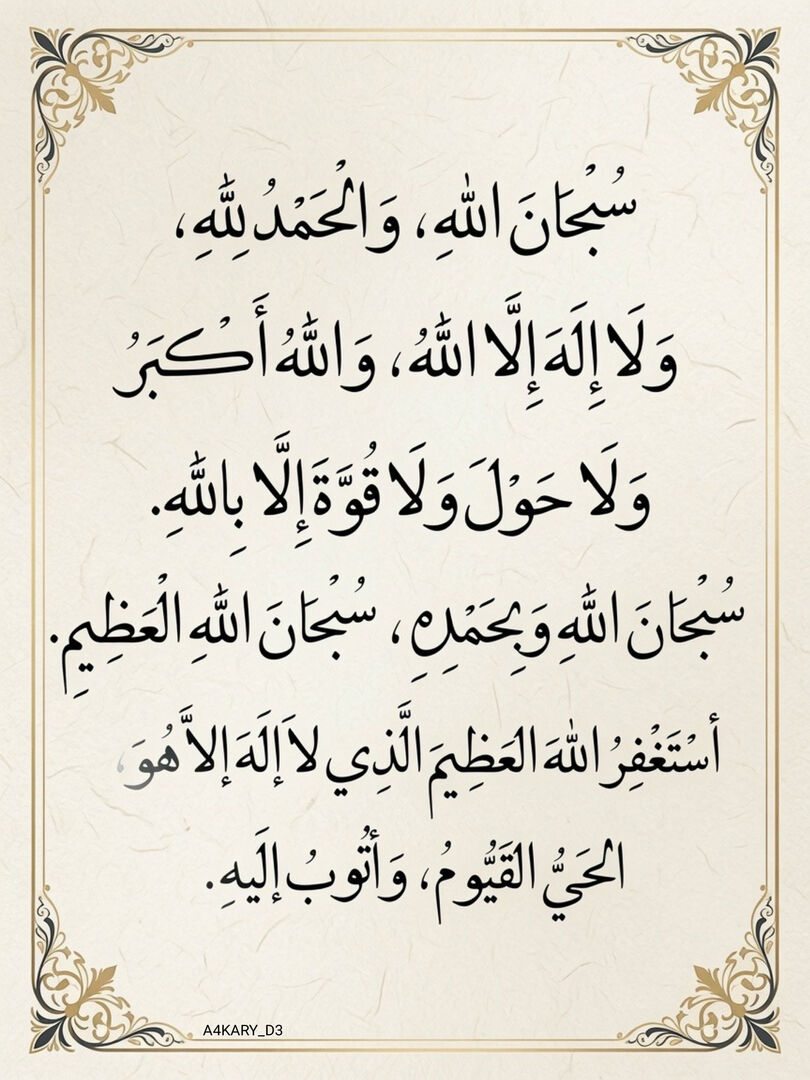 سُبْحَانَ اللهِ، وَالْحَمْدُ لِلّٰهِ،
وَلَا إِلَهَ إِلَّا اللهُ، وَاللهُ أَكْبَرُ
وَلَا حَوْلَ وَلَا قُوَّةَ إِلَّا بِاللهِ.
سُبْحَانَ اللهِ وَبِحَمْدِهِ، سُبْحَانَ اللهِ الْعَظِيمِ.
أسْتَغْفِرُ اللهَ العَظِيمَ الَّذِي لاَ إلَهَ إلاَّ هُوَ،
الحَيُّ القَيُّومُ، وَأتُوبُ إلَيهِ.
A4KARY_D3